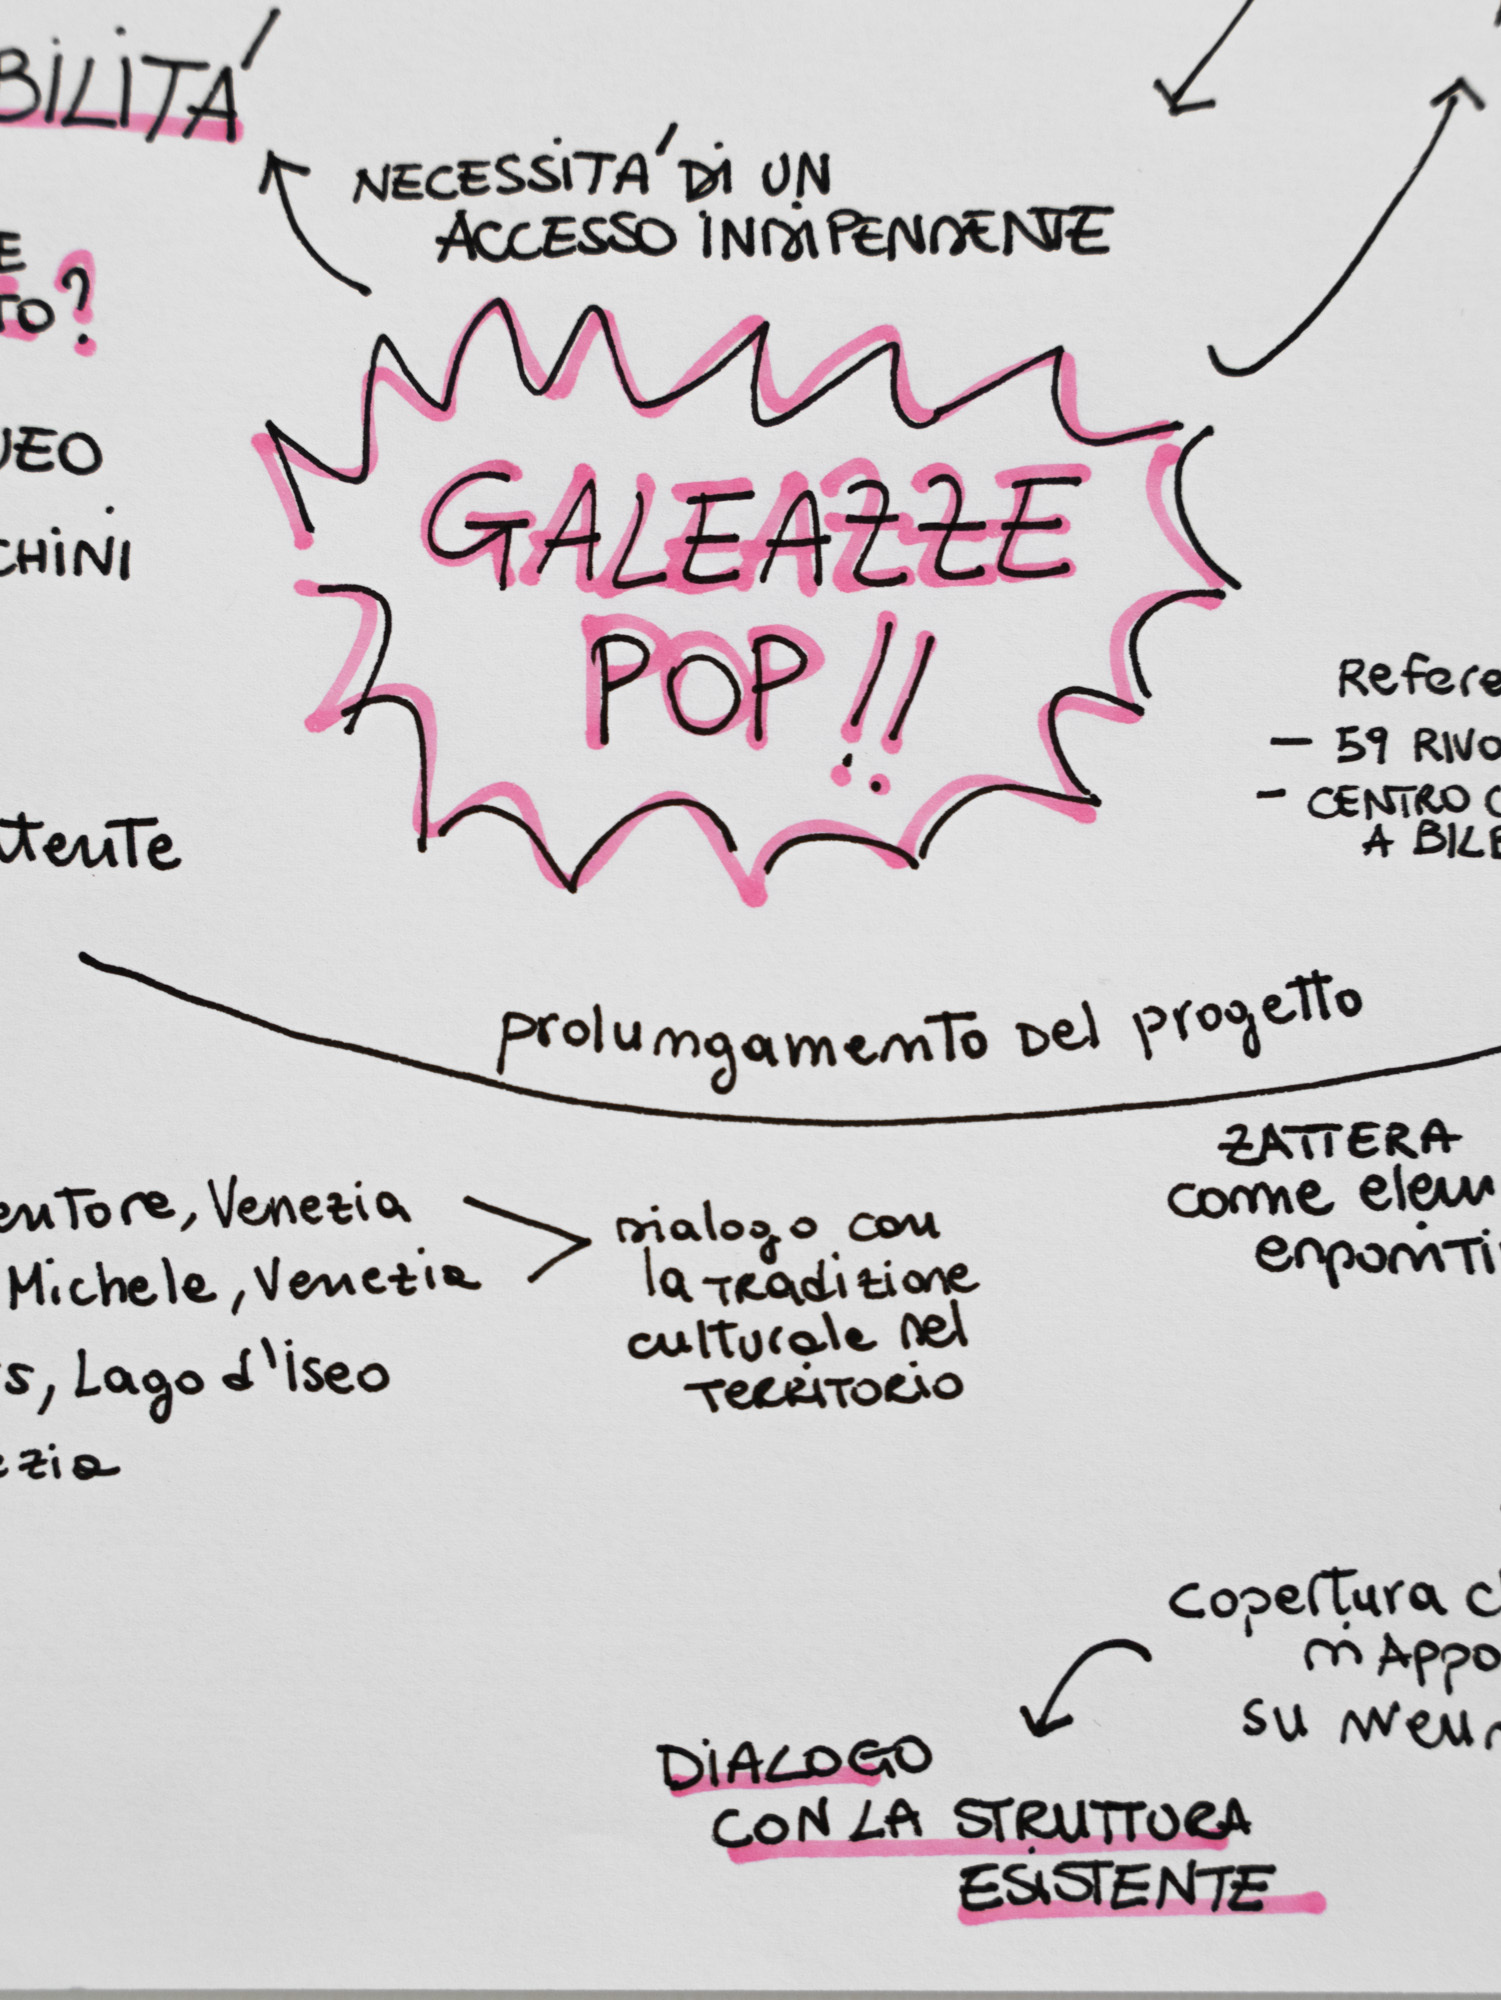 BILITÁ
NECESSITÁ DI UN
ACCESSO INDIPENDENTE
E
TO?
UEO
CHINI
GALEAZZE
POP!!
Refere
- 59 RIVO
- CENTRO C
A BILE
utente
prolungamento del progetto
ZATTERA
come elem
espositi
entore, Venezia
Michele, Venezia
s, Lago d'Iseo
ezia
dialogo con
la tradizione
culturale del
TERRITORIO
copertura c
si appo
su
DIALOGO
CON LA STRUTTURA
ESISTENTE